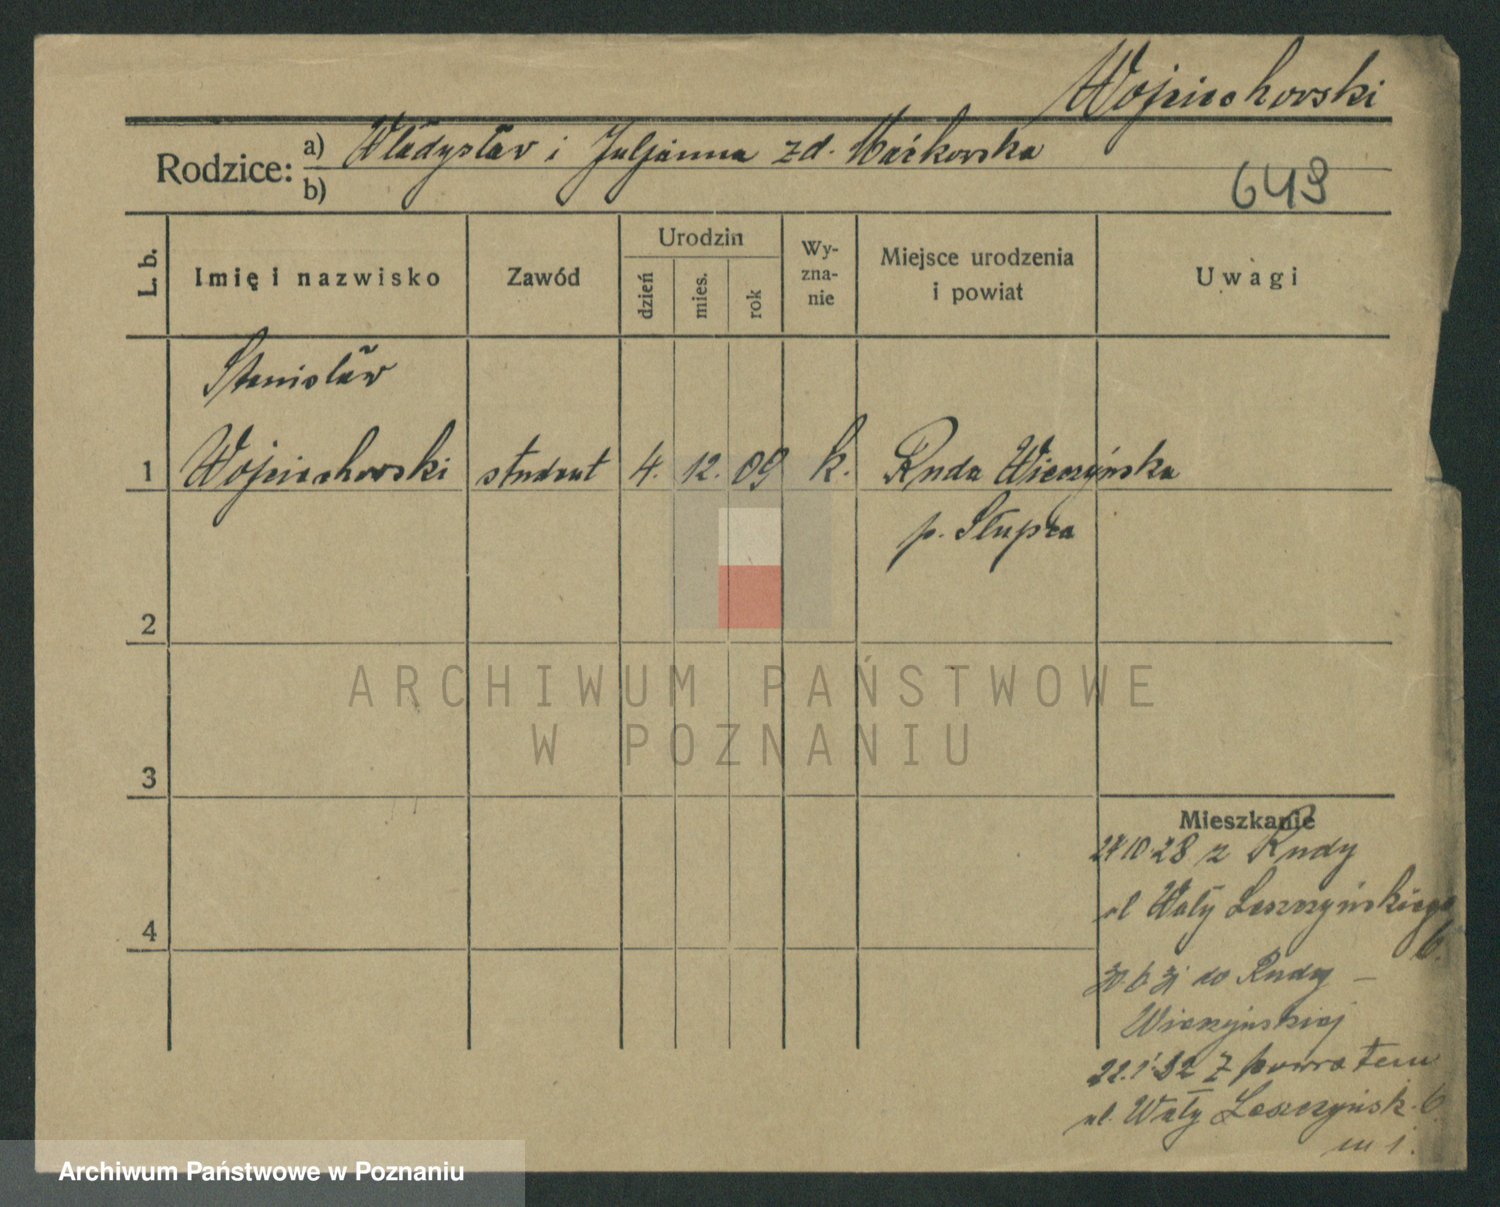 Wojciechowski
Rodzice: a) Władysław i Juljanna zd. Maćkowska
b)
649
L. b.
Imię i nazwisko
Zawód
Urodzin
dzień
mies.
rok
Wy-
zna-
nie
Miejsce urodzenia
i powiat
Uwagi
Stanisław
1 Wojciechowski student 4. 12. 09 k. Ruda Wieczyńska
p. Słupca
2
ARCHIWUM PAŃSTWOWE
W POZNANIU
3
Mieszkanie
24.10.28 z Rudy
ul Wały Leszczyńskiego
6.
4
30.6.31 do Rudy –
Wieczyńskiej
22.1.32 Z powrotem
ul. Wały Leszczyńsk. 6
m 1.
Archiwum Państwowe w Poznaniu